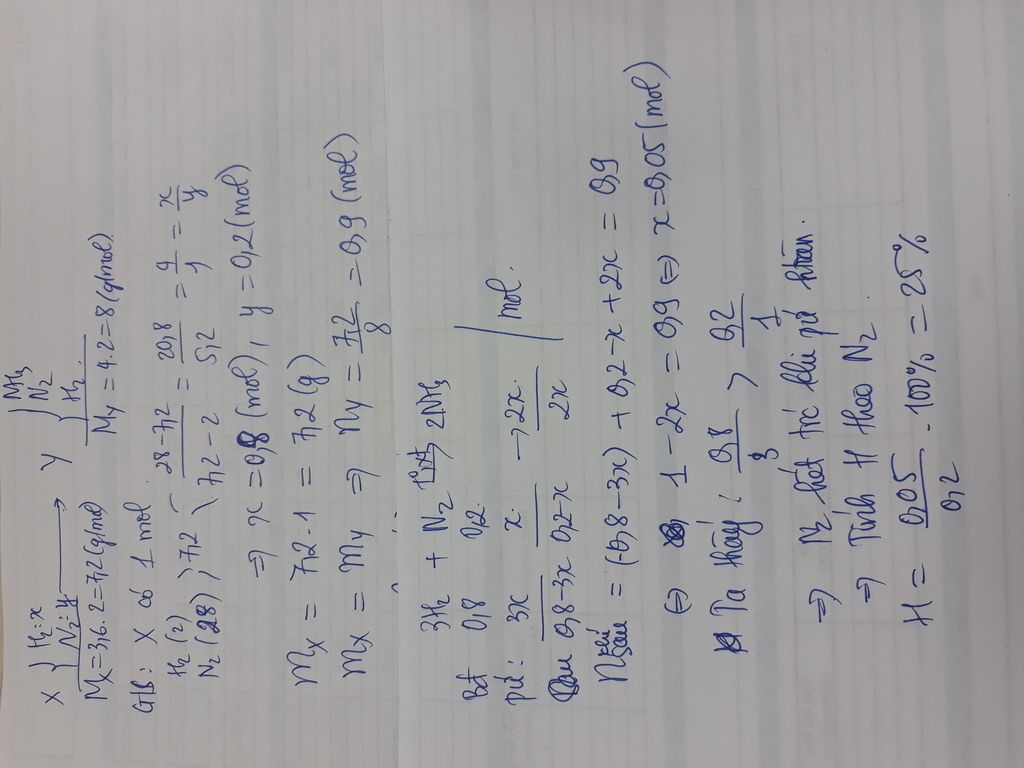 X { H₂: x N₂: y ⟶ Y { NH₃ N₂ H₂
M̅x = 3,6.2 = 7,2 (g/mol) M̅y = 4.2 = 8 (g/mol)
GIB: X có 1 mol
H₂ (2) 28-7,2
7,2 = 20,8/5,2 = 4/1 = x/y
N₂ (28) 7,2-2
⇒ x = 0,8 (mol), y = 0,2 (mol)
mx = 7,2.1 = 7,2 (g)
mx = my ⇒ ny = 7,2/8 = 0,9 (mol)
3H₂ + N₂ ⇌ 2NH₃
Bđ 0,8 0,2
pứ: 3x x → 2x mol.
Sau 0,8-3x 0,2-x 2x
n khí sau = (0,8-3x) + 0,2-x + 2x = 0,9
⇔ 1-2x = 0,9 ⇔ x = 0,05 (mol)
Ta thấy: 0,8/3 > 0,2/1
⇒ N₂ hết trc khi pứ htoàn
⇒ Tính H theo N₂
H = 0,05/0,2 . 100% = 25%